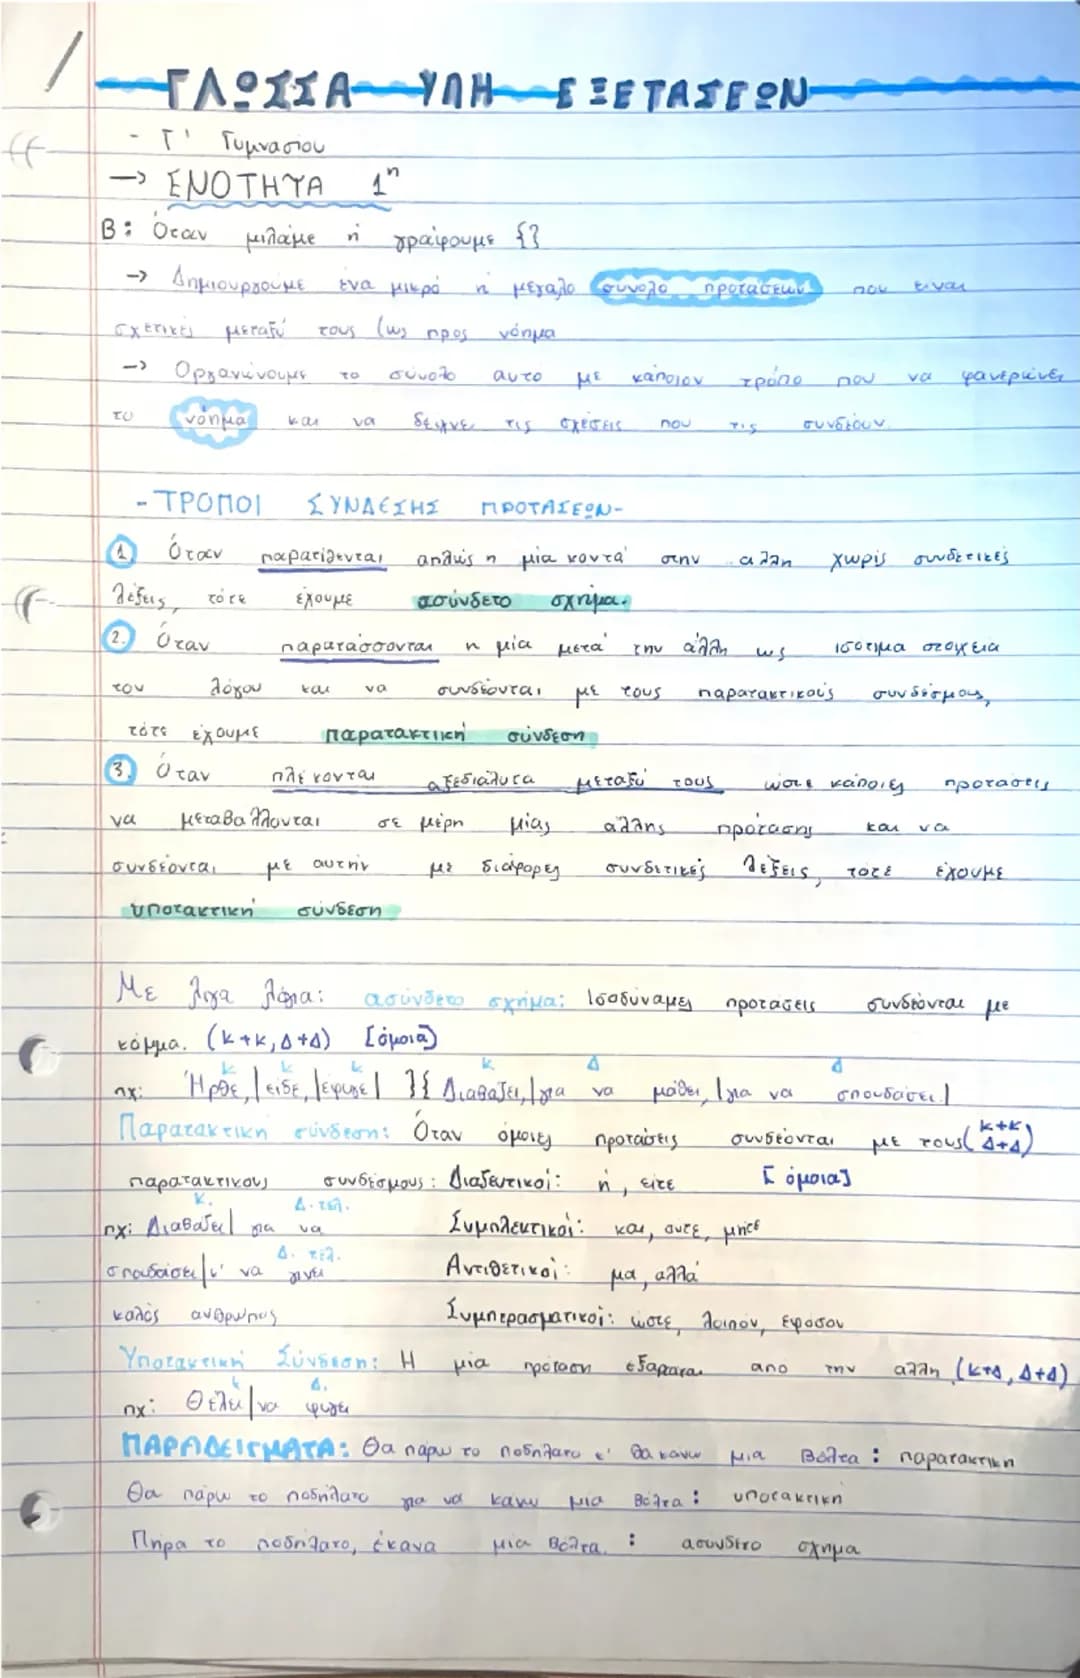 ΓΛΩΣΣΑ ΥΛΗ ΕΞΕΤΑΣΕΩΝ
- Γ' Γυμνασίου
→ ΕΝΟΤΗΤΑ 1η
Β: Όταν μιλάμε ή γράφουμε {}
→ Δημιουργούμε ένα μικρό ή μεγάλο σύνολο προτάσεων που είναι
σχετικές μεταξύ τους (ως προς νόημα
→ Οργανώνουμε το σύνολο αυτό με κάποιον τρόπο που να φανερώνει
το νόημα και να δειχνει τις σχέσεις που τις συνδέουν.
- ΤΡΟΠΟΙ ΣΥΝΔΕΣΗΣ ΠΡΟΤΑΣΕΩΝ-
1. Όταν παρατίθενται απλώς η μία κοντά στην αλλη χωρίς συνδετικές
λέξεις, τότε έχουμε ασύνδετο σχήμα.
2. Όταν παρατάσσονται η μία μετά την άλλη ως ισότιμα στοιχεία
του λόγου και να συνδέονται με τους παρατακτικούς συνδέσμους,
τότε έχουμε παρατακτική σύνδεση
3. Όταν πλέκονται αξεδιάλυτα μεταξύ τους ώστε κάποιες προτάσεις
να μεταβάλλονται σε μέρη μίας άλλης πρότασης και να
συνδέονται με αυτήν με διάφορες συνδετικές λέξεις, τότε έχουμε
υποτακτική σύνδεση
Με λιγα λόγια: ασύνδετο σχήμα: Ισοδύναμες προτάσεις συνδέονται με
κόμμα. (Κ+Κ, Δ+Δ) [όμοια]
κ κ κ κ Δ Δ
πχ: Ήρθε, |είδε, |έφυγε| }{ Διαβάζει, |για να μάθει, |για να σπουδάσει.|
Παρατακτική σύνδεση: Όταν όμοιες προτάσεις συνδέονται με τους (κ+κ, Δ+Δ)
παρατακτικους συνδέσμους: Διαζευτικοί: ή, είτε [όμοια]
κ. Δ. τελ.
πχ: Διαβάζει| για να Συμπλεκτικοί: και, ουτε, μητε
Δ. τελ.
σπουδάσει|κ' να γινει Αντιθετικοί: μα, αλλά
καλός ανθρωπος Συμπερασματικοί: ώστε, λοιπόν, εφόσον
Υποτακτική Σύνδεση: Η μία πρόταση εξαρταται απο την αλλη (κ+Δ, Δ+Δ)
κ Δ.
πχ: Θέλει|να φυγει
ΠΑΡΑΔΕΙΓΜΑΤΑ: Θα πάρω το ποδήλατο κ' θα κανω μια Βόλτα: παρατακτικη
Θα πάρω το ποδήλατο για να κανω μια Βόλτα: υποτακτική
Πήρα το ποδήλατο, έκανα μία Βόλτα.: ασυνδετο σχημα